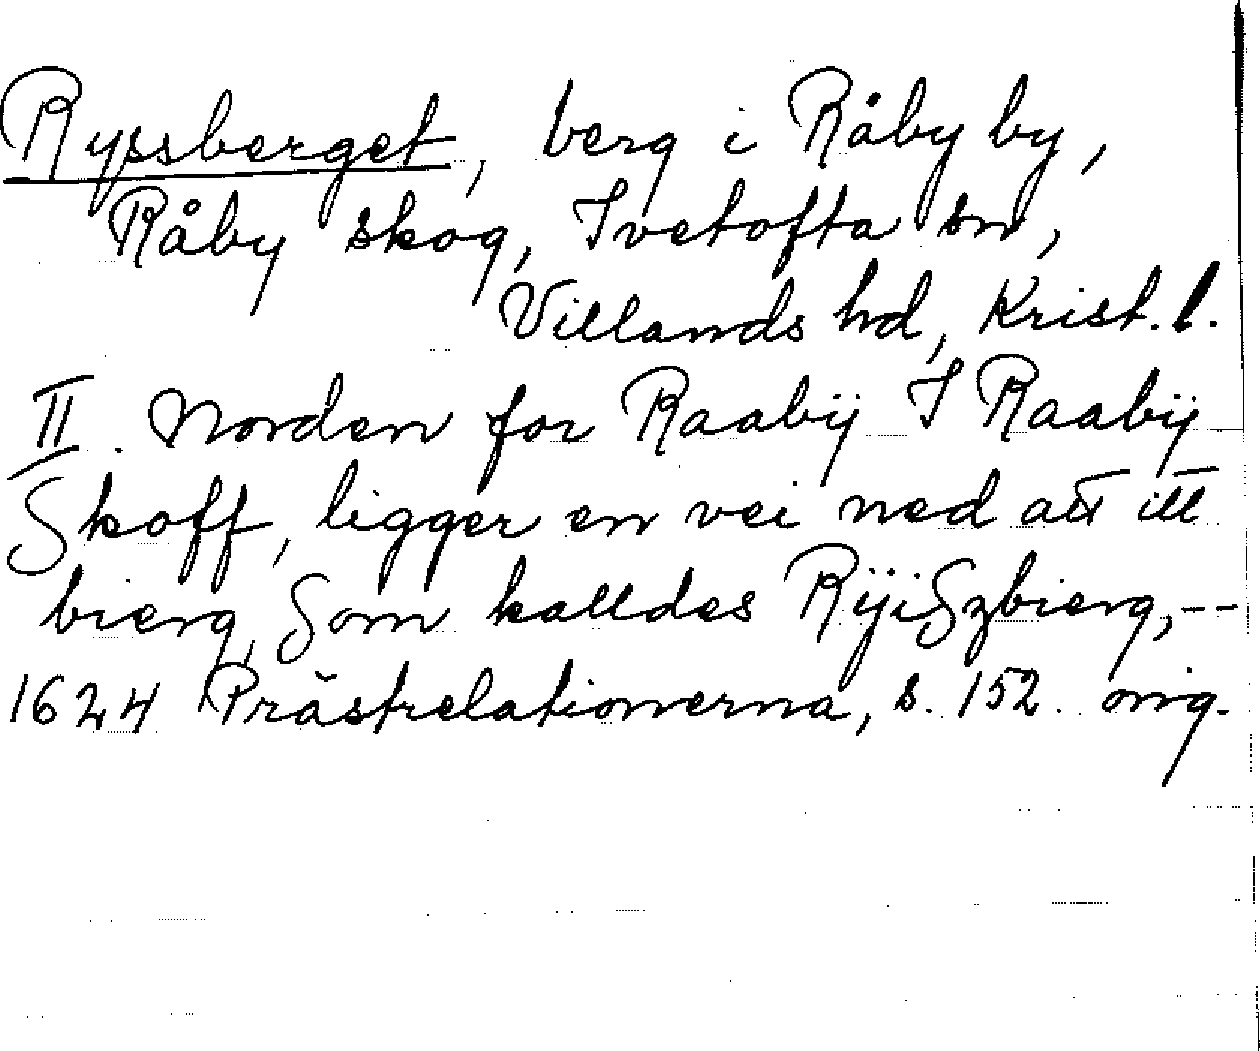 Ryssberget, berg i Råby by,
Råby skog, Ivetofta sn,
Villands hd, Krist. l.
II. Norden for Raabÿ I Raabÿ
Skoff, ligger en vei ned att itt
bierg, Som kalldes RÿiSzbierg, --
1624 Prästrelationerna, s. 152. orig.